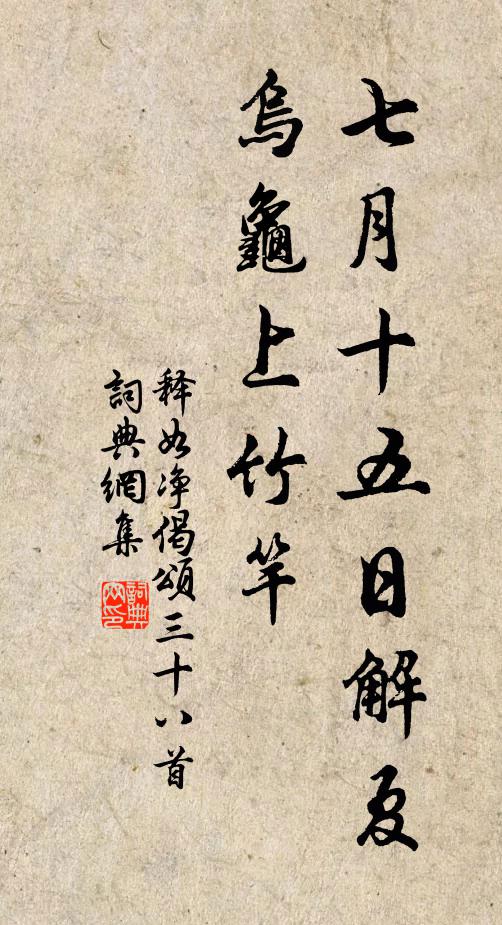 七月十五日解夏
乌龜上竹竿
释如净偈頌三十八首
詞典網集
詞典网印